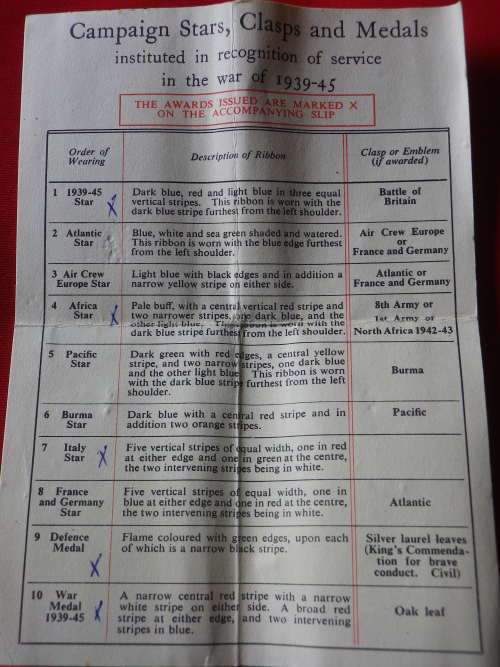 Campaign Stars, Clasps and Medals
instituted in recognition of service
in the war of 1939-45
THE AWARDS ISSUED ARE MARKED X
ON THE ACCOMPANYING SLIP
Order of
Wearing
Description of Ribbon
Clasp or Emblem
(if awarded)
1 1939-45
Star
X
Dark blue, red and light blue in three equal
vertical stripes. This ribbon is worn with the
dark blue stripe furthest from the left shoulder.
Battle of
Britain
2 Atlantic
Star
Blue, white and sea green shaded and watered.
This ribbon is worn with the blue edge furthest
from the left shoulder.
Air Crew Europe
or
France and Germany
3 Air Crew
Europe Star
Light blue with black edges and in addition a
narrow yellow stripe on either side.
Atlantic or
France and Germany
4 Africa
Star
X
Pale buff, with a central vertical red stripe and
two narrower stripes, one dark blue, and the
other light blue. This ribbon is worn with the
dark blue stripe furthest from the left shoulder.
8th Army or
1st Army or
North Africa 1942-43
5 Pacific
Star
Dark green with red edges, a central yellow
stripe, and two narrow stripes, one dark blue
and the other light blue. This ribbon is worn
with the dark blue stripe furthest from the left
shoulder.
Burma
6 Burma
Star
Dark blue with a central red stripe and in
addition two orange stripes.
Pacific
7 Italy
Star
X
Five vertical stripes of equal width, one in red
at either edge and one in green at the centre,
the two intervening stripes being in white.
8 France
and Germany
Star
Five vertical stripes of equal width, one in
blue at either edge and one in red at the centre,
the two intervening stripes being in white.
Atlantic
9 Defence
Medal
X
Flame coloured with green edges, upon each
of which is a narrow black stripe.
Silver laurel leaves
(King's Commenda-
tion for brave
conduct. Civil)
10 War
Medal
1939-45
X
A narrow central red stripe with a narrow
white stripe on either side. A broad red
stripe at either edge, and two intervening
stripes in blue.
Oak leaf